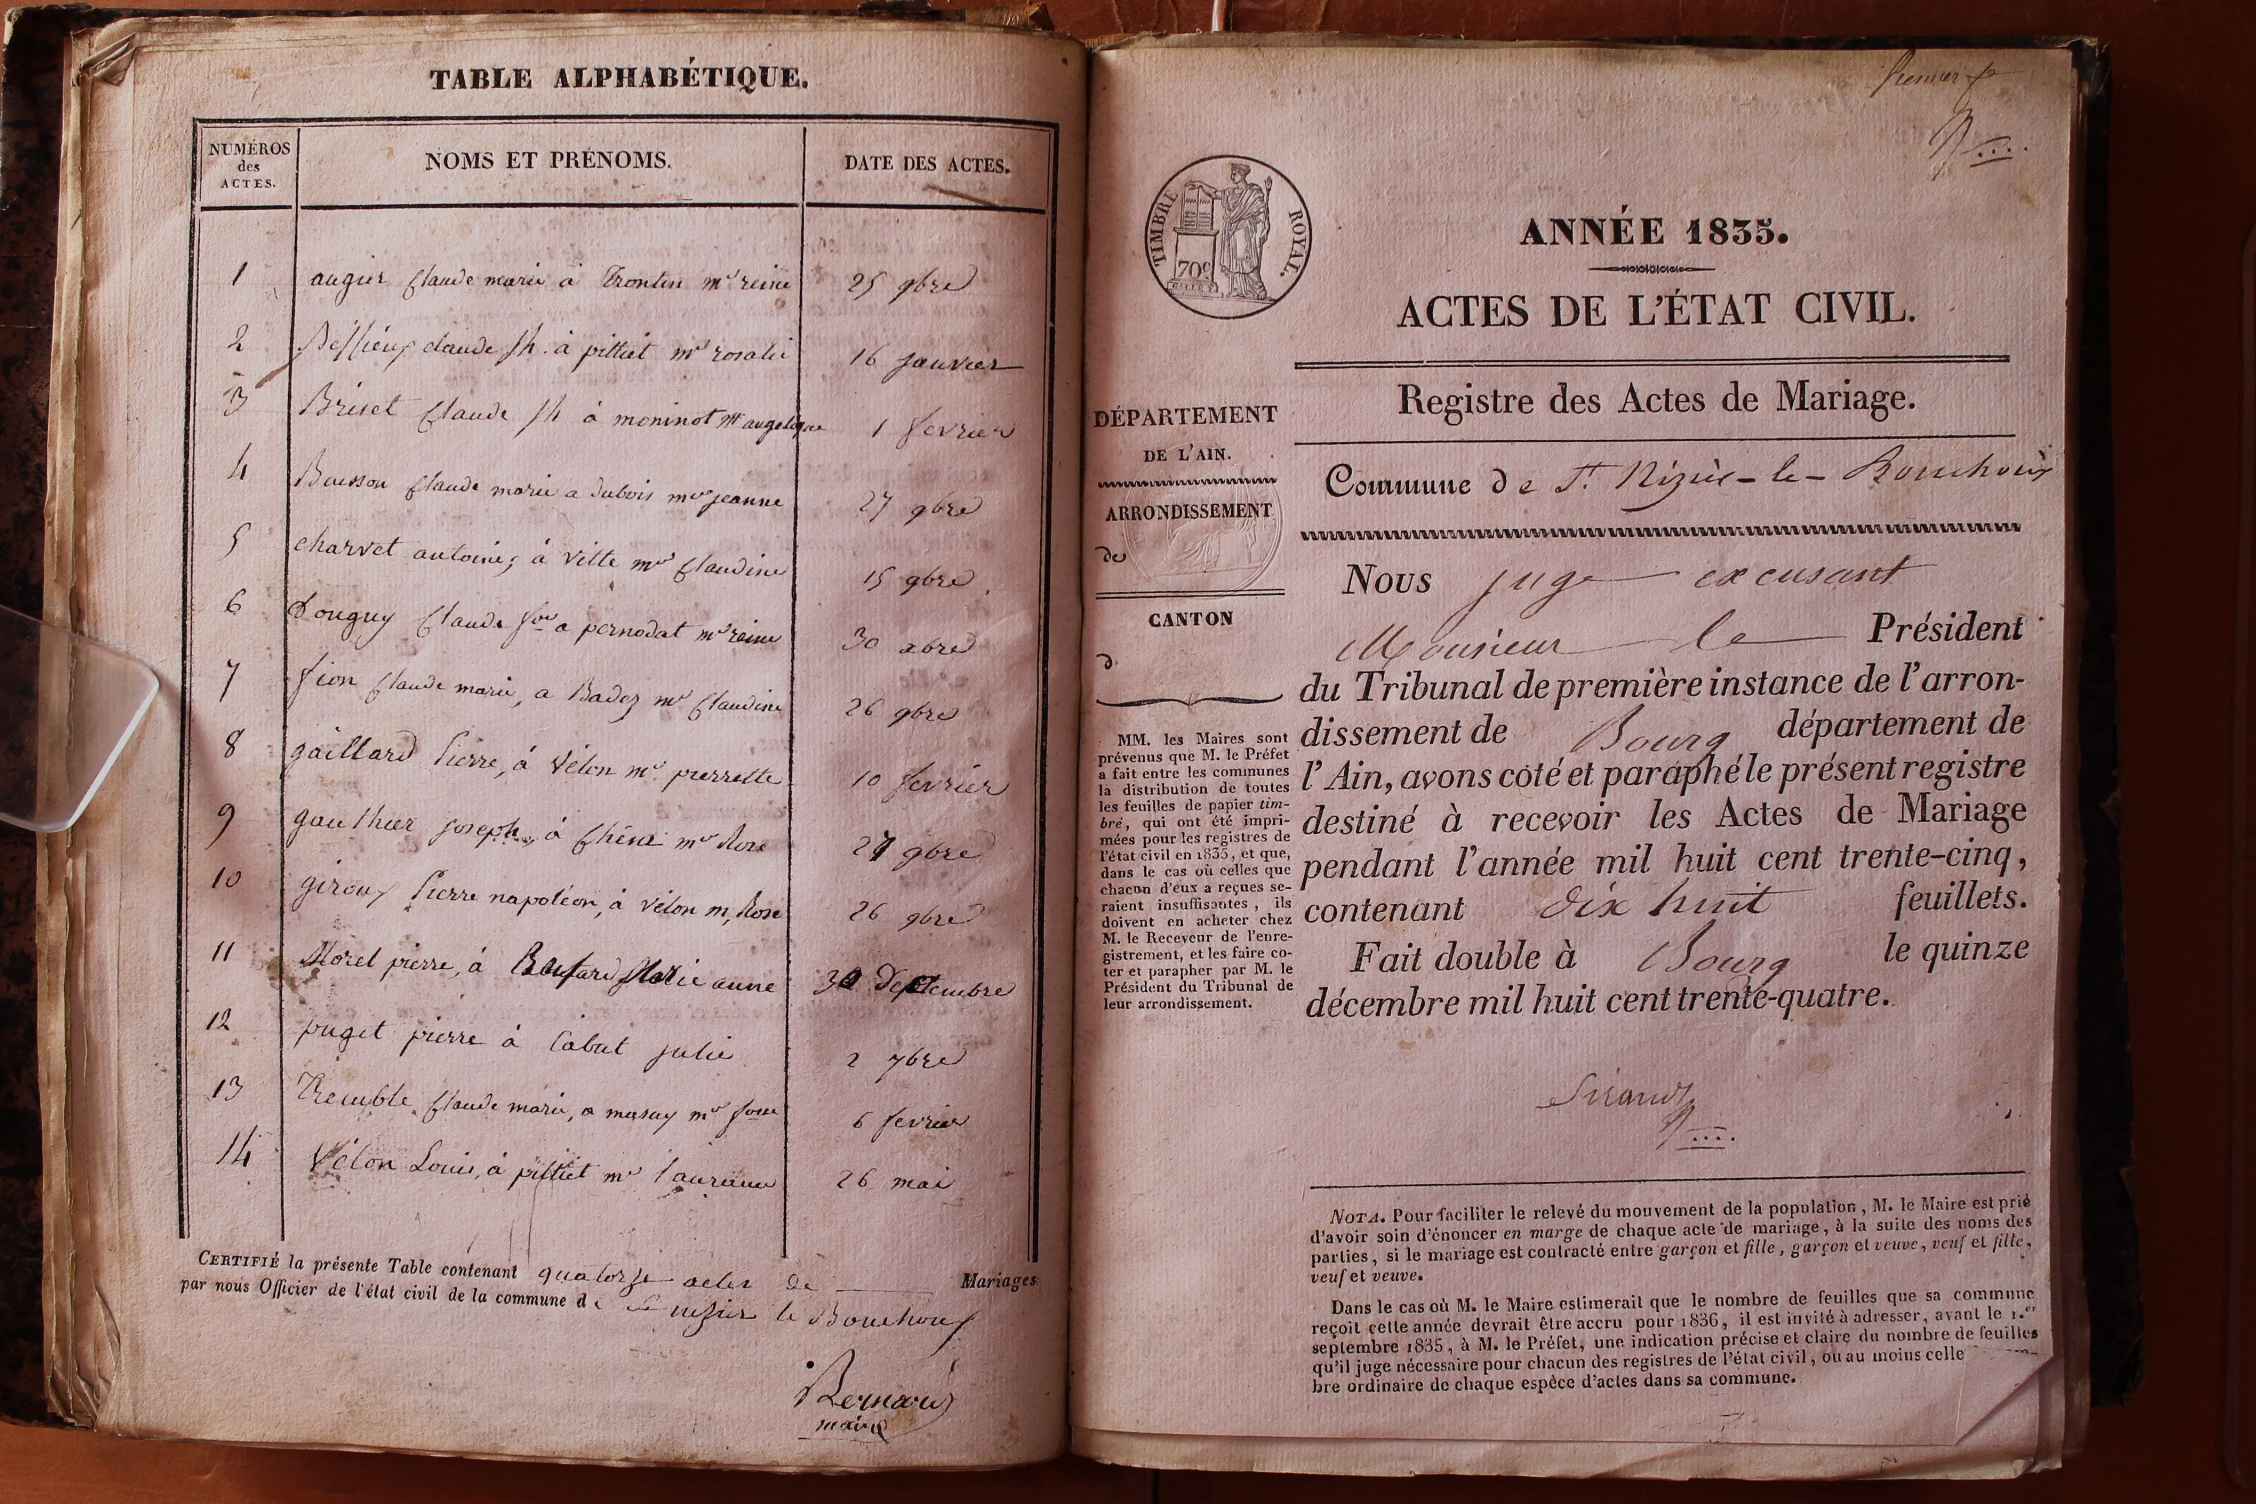 TABLE ALPHABÉTIQUE.
NUMÉROS des ACTES. NOMS ET PRÉNOMS. DATE DES ACTES.
1 augier Claude marie à Trontin mie reine 25 9bre
2 claude jh. à pittiet mie rosalie 16 janvier
3 Briset Claude jh à moninot m angelique 1 fevrier
4 Buisson Claude marie a dubois mie jeanne 27 9bre
5 charvet antoine, à Vitte mie Claudine 15 9bre
6 Douguy Claude a pernodat mie reine 30 xbre
7 fion Claude marie, a Badez mie Claudine 26 9bre
8 gaillard Pierre, à Vélon mie pierrette 10 fevrier
9 gauthier joseph, à Chêne mie Rose 27 9bre
10 giroux Pierre napoléon, à Vélon m, Rose 26 9bre
11 Morel pierre, à Marie anne 30 Septembre
12 puget pierre à Cabut julie 2 7bre
13 Tremble Claude marie, a mie 6 fevrier
14 Vélon Louis, à pittiet mie 26 mai
CERTIFIÉ la présente Table contenant quatorze actes de Mariages
par nous Officier de l'état civil de la commune de St nizier le Bouchoux
Bernard
maire
Premier
TIMBRE ROYAL.
70c
ANNÉE 1835.
ACTES DE L'ÉTAT CIVIL.
Registre des Actes de Mariage.
DÉPARTEMENT
DE L'AIN.
ARRONDISSEMENT
de
CANTON
d
MM. les Maires sont
prévenus que M. le Préfet
a fait entre les communes
la distribution de toutes
les feuilles de papier tim-
bré, qui ont été impri-
mées pour les registres de
l'état civil en 1835, et que,
dans le cas où celles que
chacun d'eux a reçues se-
raient insuffisantes, ils
doivent en acheter chez
M. le Receveur de l'enre-
gistrement, et les faire co-
ter et parapher par M. le
Président du Tribunal de
leur arrondissement.
Commune de St. Nizier-le-Bouchoux
Nous juge excusant
Monsieur le Président
du Tribunal de première instance de l'arron-
dissement de Bourg département de
l'Ain, avons coté et paraphé le présent registre
destiné à recevoir les Actes de Mariage
pendant l'année mil huit cent trente-cinq,
contenant dix huit feuillets.
Fait double à Bourg le quinze
décembre mil huit cent trente-quatre.
NOTA. Pour faciliter le relevé du mouvement de la population, M. le Maire est prié
d'avoir soin d'énoncer en marge de chaque acte de mariage, à la suite des noms des
parties, si le mariage est contracté entre garçon et fille, garçon et veuve, veuf et fille,
veuf et veuve.
Dans le cas où M. le Maire estimerait que le nombre de feuilles que sa commune
reçoit cette année devrait être accru pour 1836, il est invité à adresser, avant le 1.er
septembre 1835, à M. le Préfet, une indication précise et claire du nombre de feuilles
qu'il juge nécessaire pour chacun des registres de l'état civil, ou au moins celle
bre ordinaire de chaque espèce d'actes dans sa commune.